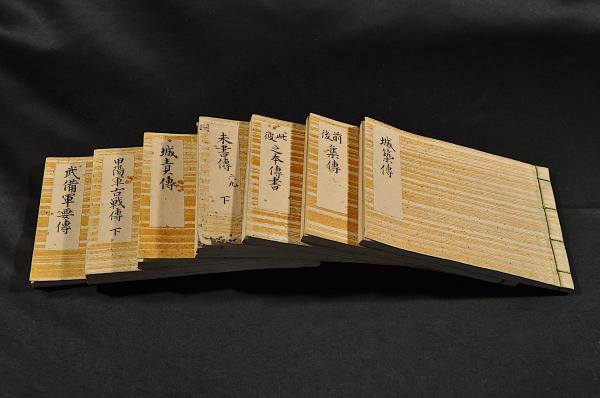 城築傳
前後集傳
此彼之本傳書
末書傳 下
城責傳
甲陽軍古戦傳 下
武備軍要傳